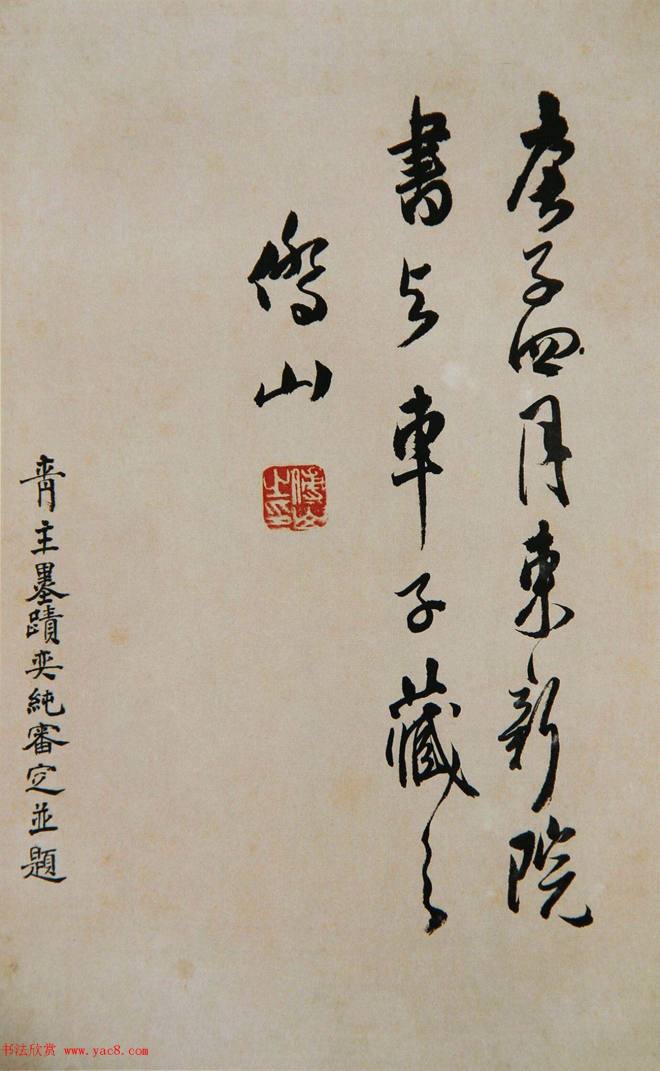 庚子四月東新院
書与車子藏之
僑山
傅山之印
青主墨蹟奕純審定並題
书法欣赏 www.yac8.com